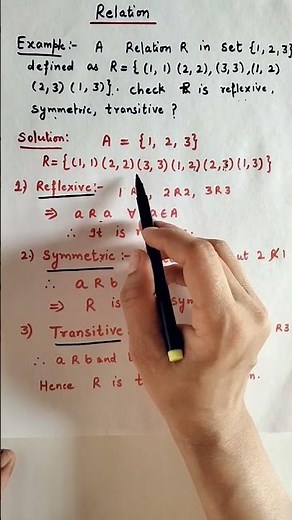 Relation
Example:- A Relation R in set {1, 2, 3}
defined as R = { (1, 1) (2, 2), (3, 3), (1, 2)
(2, 3) (1, 3)}. check R is reflexive,
symmetric, transitive ?
Solution: A = {1, 2, 3}
R = { (1, 1) (2, 2) (3, 3) (1, 2) (2, 3) (1, 3)}
1) Reflexive:- 1 R 2R2, 3R3
⇒ a R a ∀ a∈A
∴ It is
2) Symmetric:- but 2 R̸ 1
∴ a R b
⇒ R is sym
3) Transitive R3
∴ a R b and
Hence R is